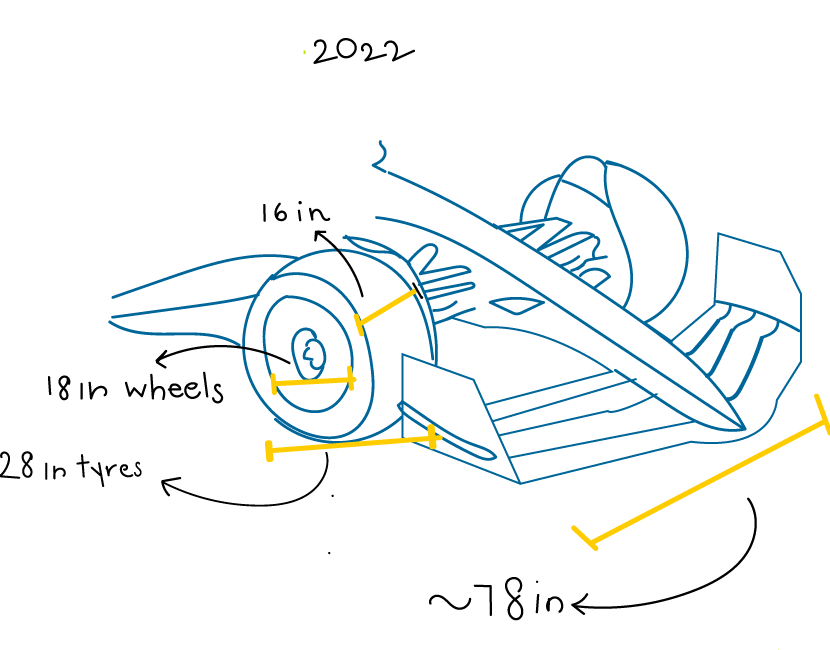 2022
16 in
18 in wheels
28 in tyres
~78 in